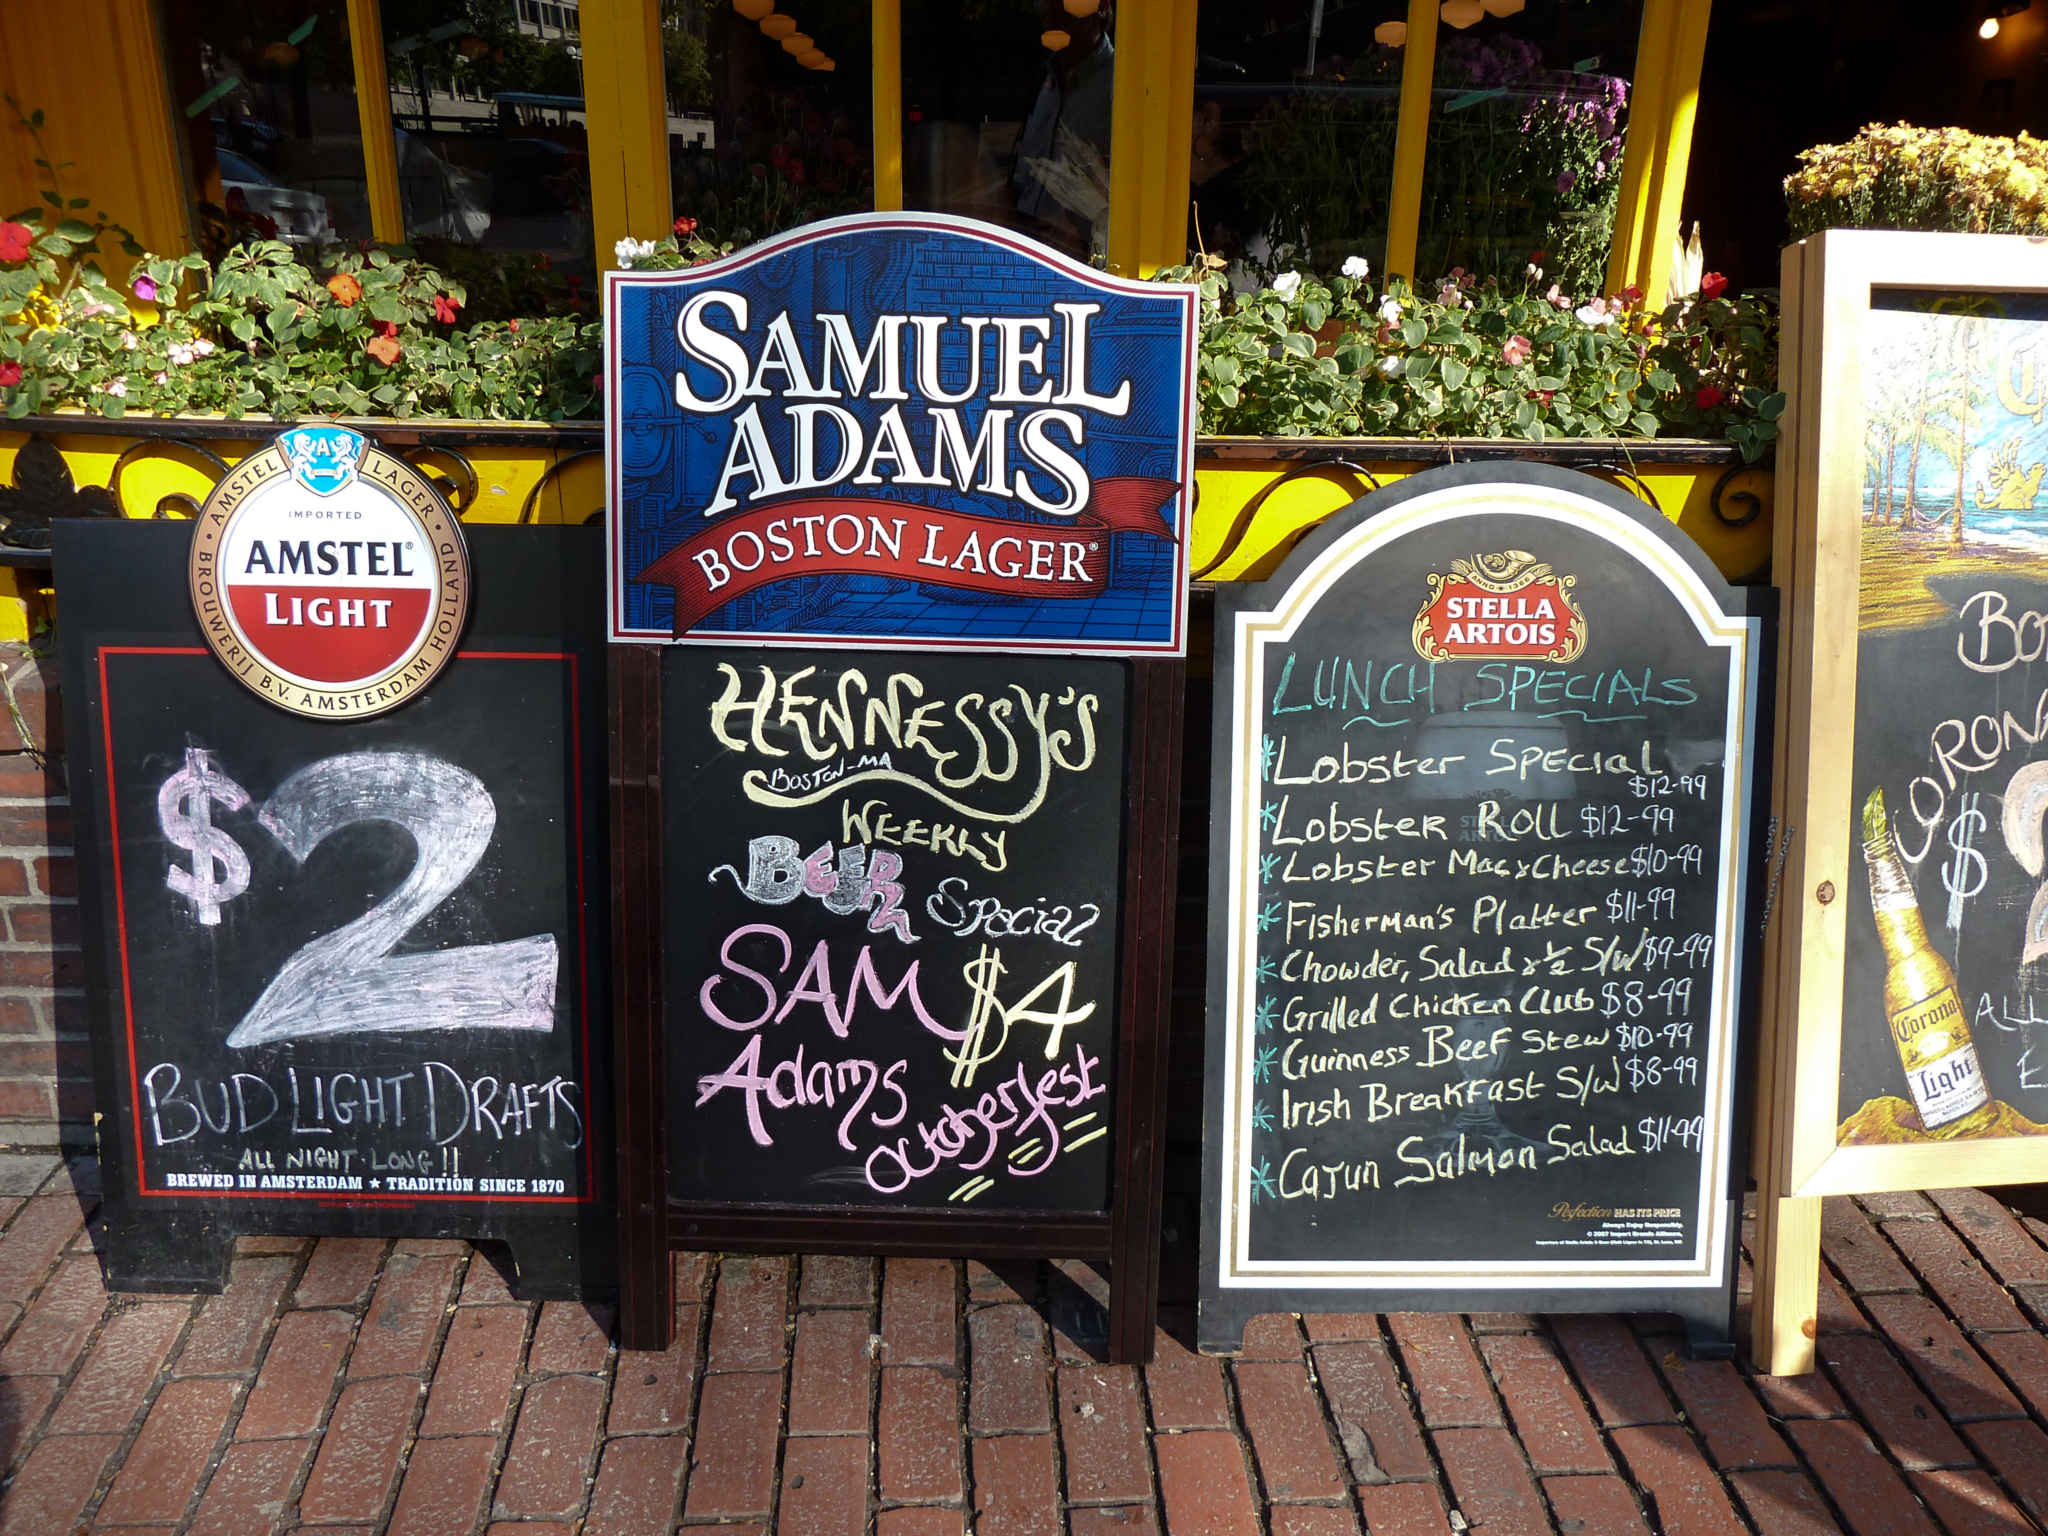 AMSTEL LAGER
A
IMPORTED
AMSTEL®
LIGHT
BROUWERIJ B.V. AMSTERDAM HOLLAND
$2
BUD LIGHT DRAFTS
ALL NIGHT LONG!!
BREWED IN AMSTERDAM ★ TRADITION SINCE 1870
SAMUEL
ADAMS
BOSTON LAGER®
HENNESSY'S
BOSTON-MA
WEEKLY
BEER Special
SAM $4
Adams
Octoberfest
ANNO 1366
STELLA
ARTOIS
LUNCH SPECIALS
* Lobster Special
$12-99
* Lobster Roll $12-99
* Lobster Mac & Cheese $10-99
* Fisherman's Platter $11-99
* Chowder, Salad & ½ S/W $9-99
* Grilled Chicken Club $8-99
* Guinness Beef Stew $10-99
* Irish Breakfast S/W $8-99
* Cajun Salmon Salad $11-99
Perfection HAS ITS PRICE
Always Enjoy Responsibly.
© 2007 Import Brands Alliance,
BO
CORONA
$2
Corona
Light
ALL
E